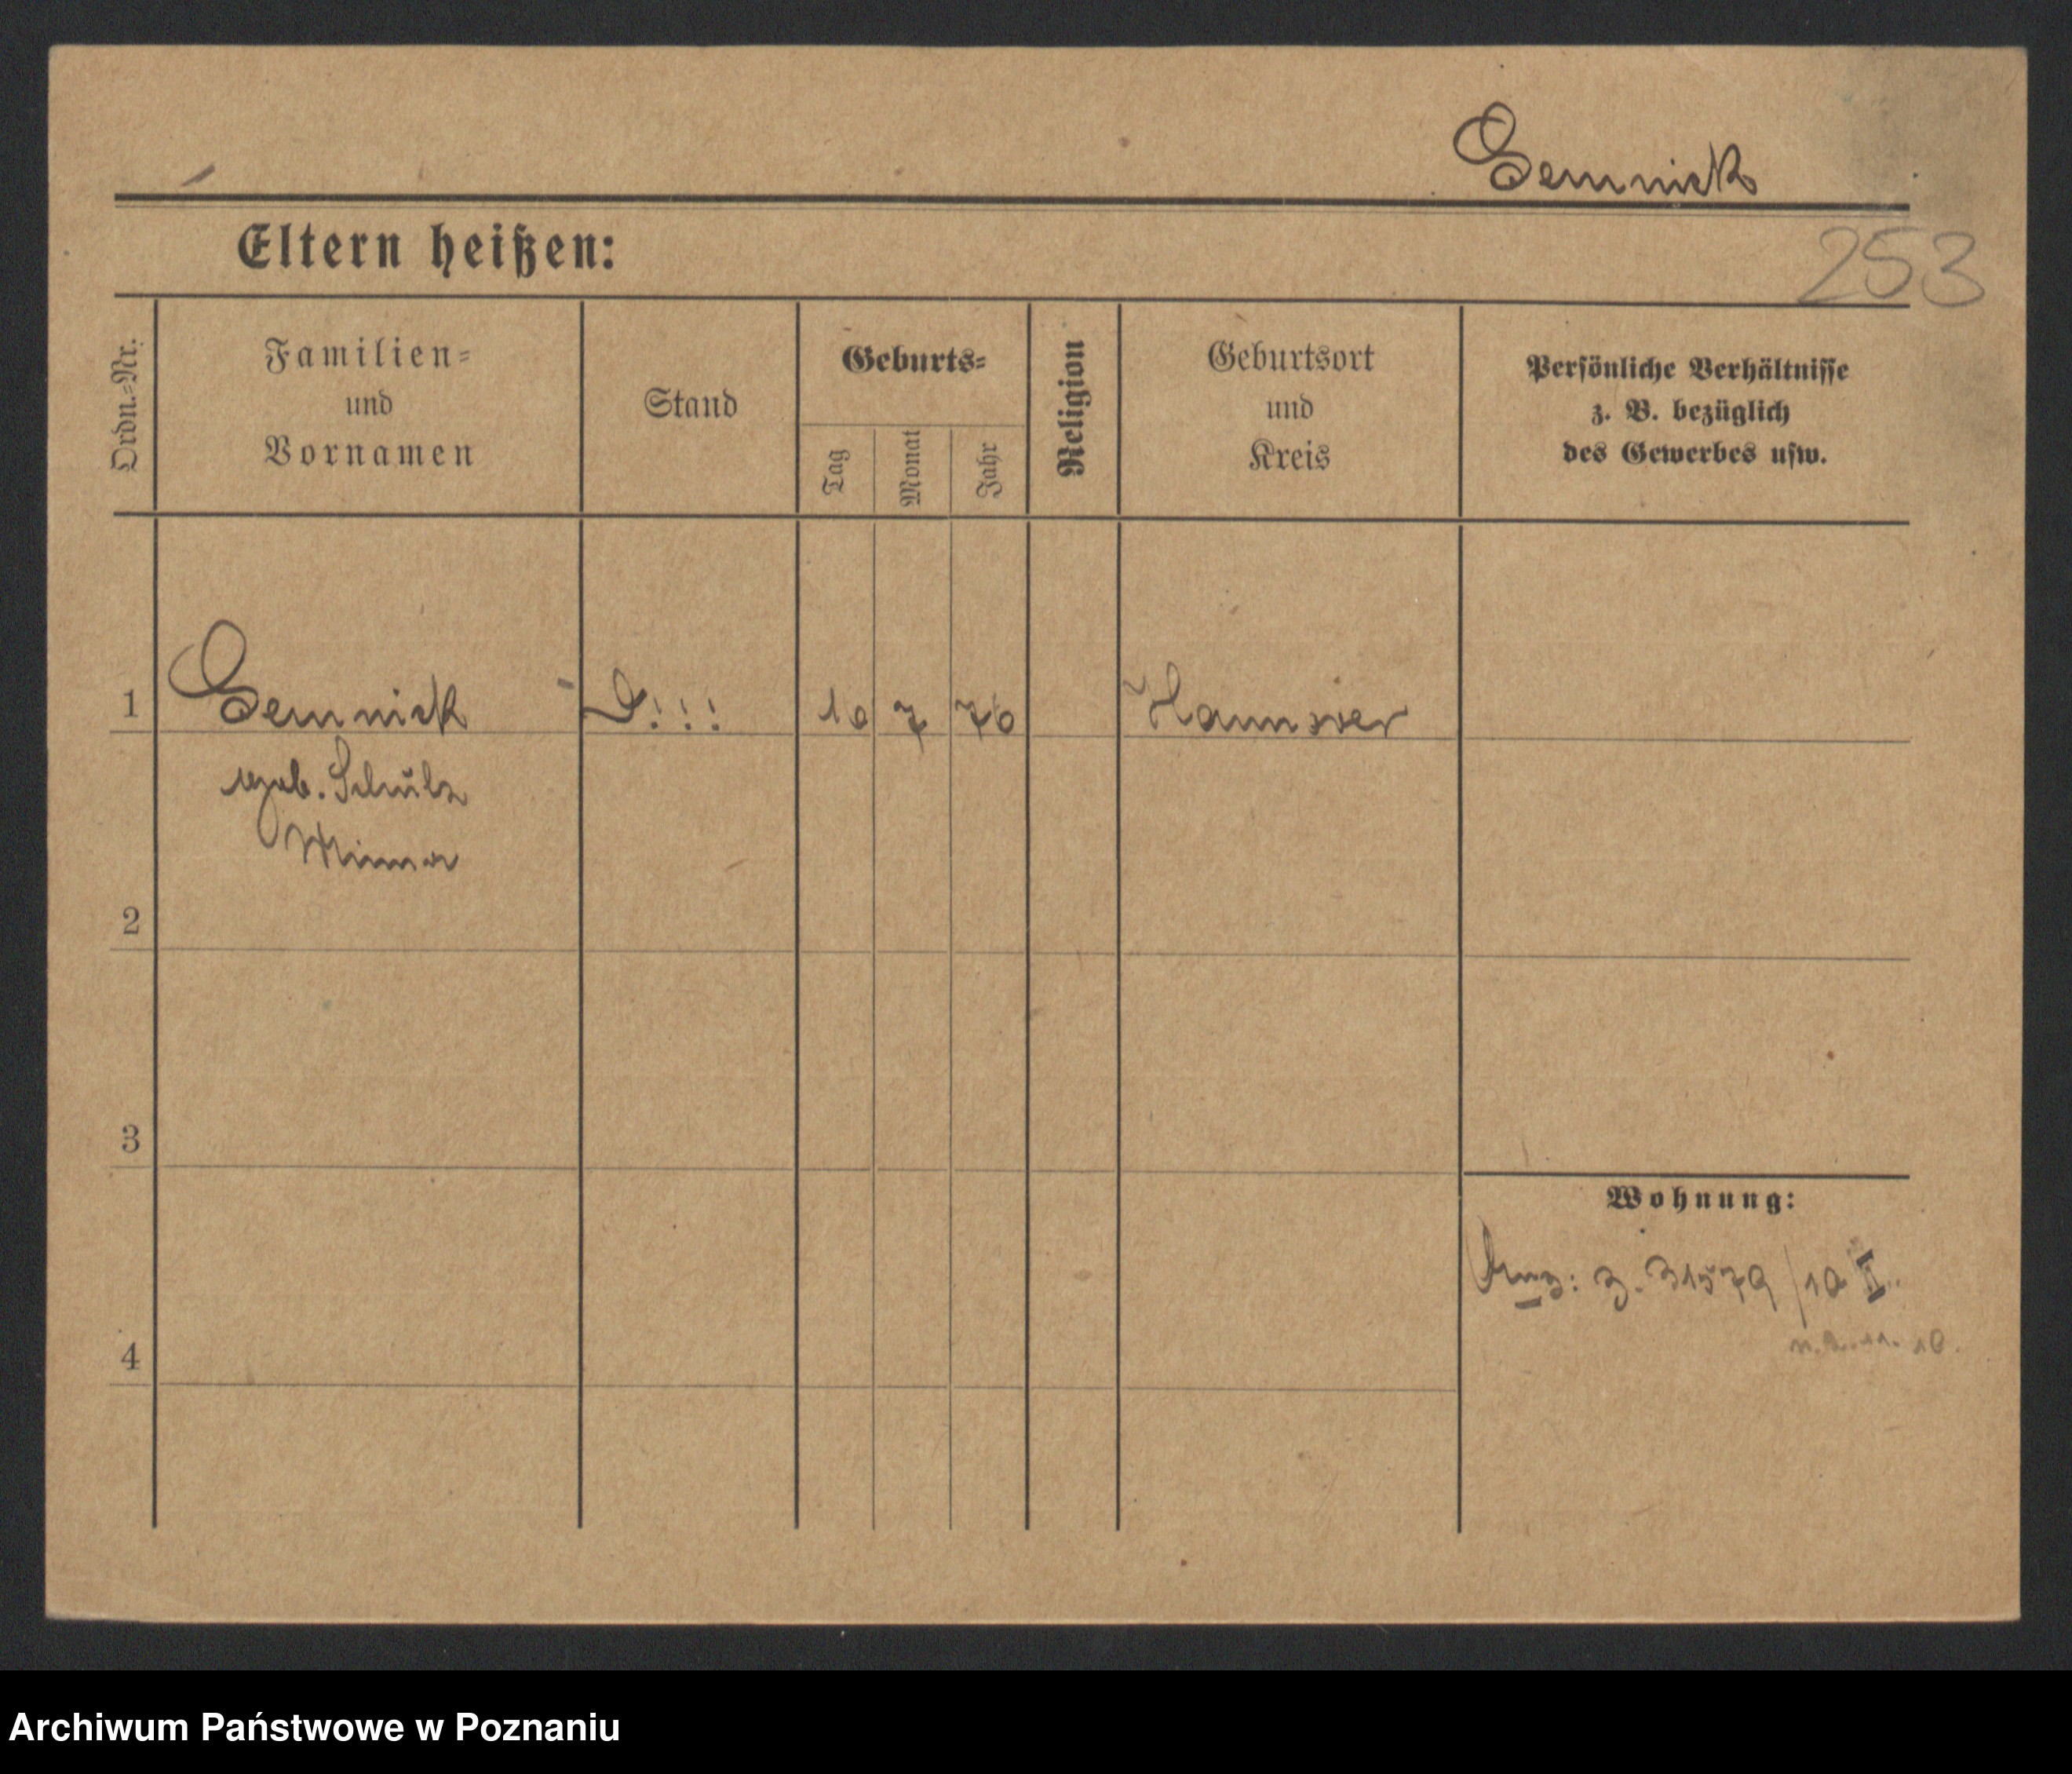 Gemnick
Eltern heißen:
253
Ordn.=Nr.
Familien=
und
Vornamen
Stand
Geburts=
Tag
Monat
Jahr
Religion
Geburtsort
und
Kreis
Persönliche Verhältnisse
z. B. bezüglich
des Gewerbes usw.
1 Gemnick D!!! 10 7 76 Hannover
geb. Schulz
Minna
2
3
Wohnung:
3. 31579/10 II.
4
Archiwum Państwowe w Poznaniu